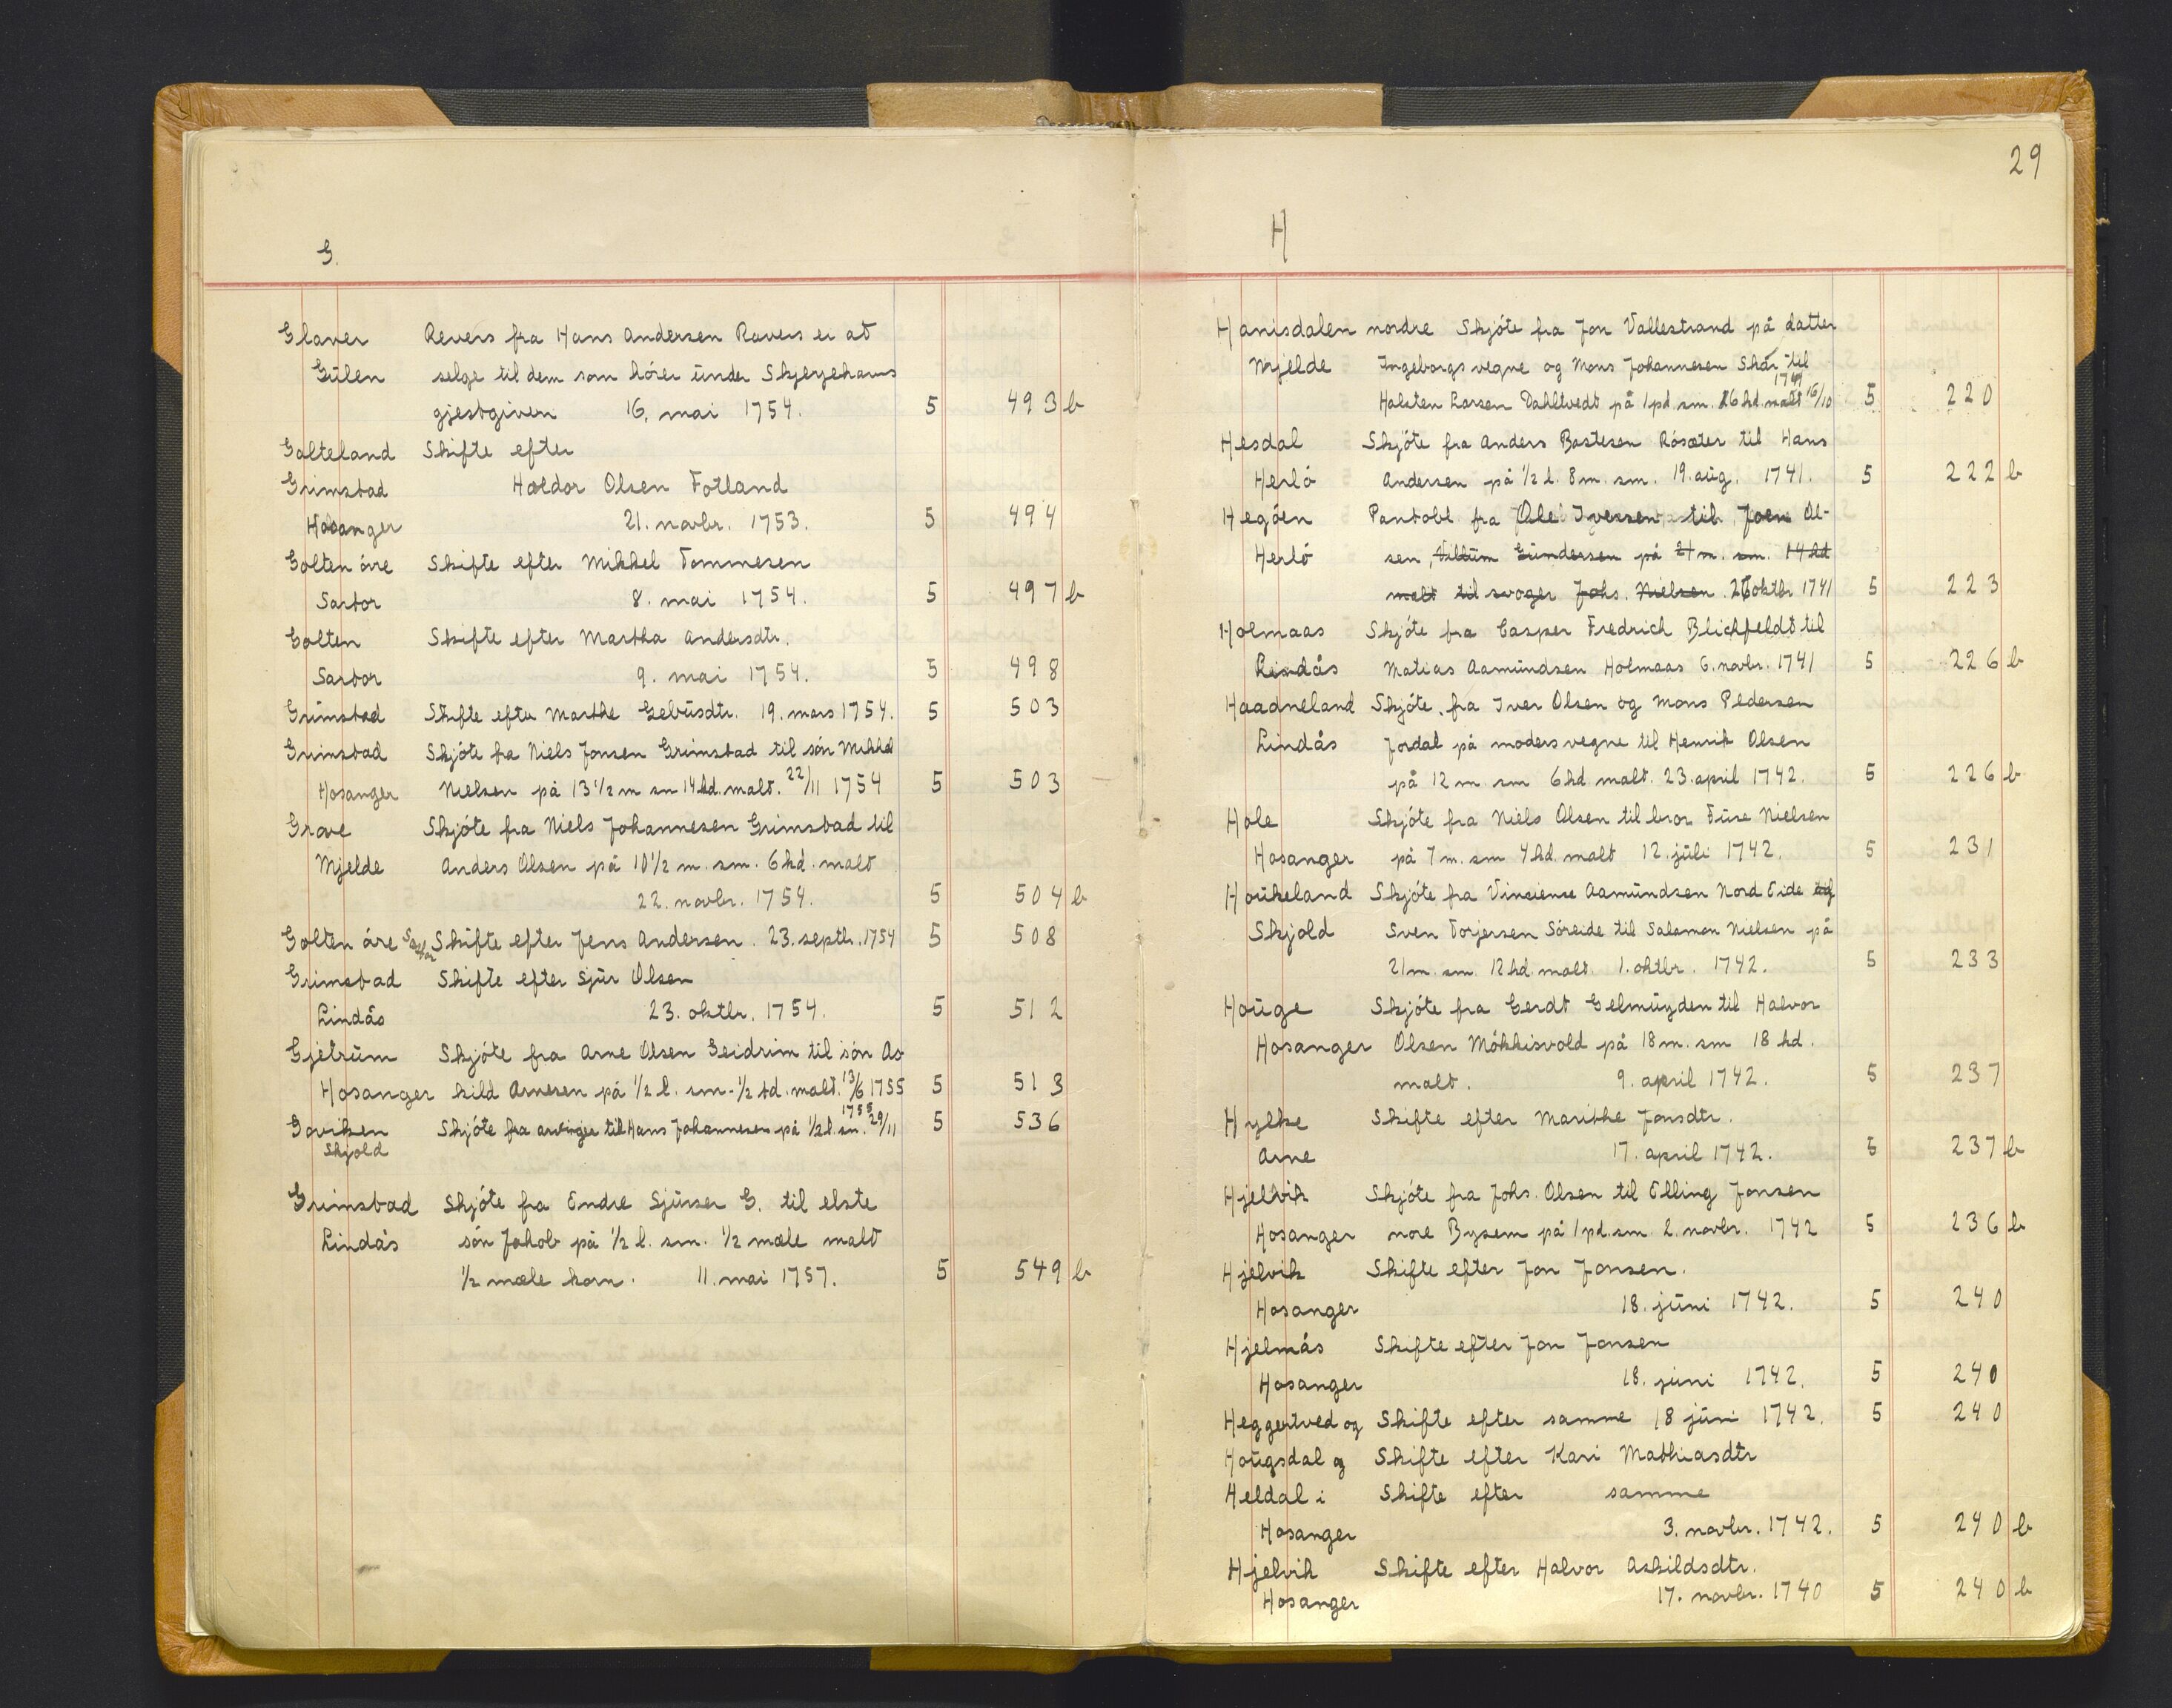 G.
Glaver Revers fra Hans Andersen Ravers er at
Gülen selge til dem som hører ünder Skjerjehavns
gjestgiveri 16. mai 1754. 5 493 b
Galteland Skifte efter
Grimstad Haldor Olsen Fotland
Hosanger 21. novbr. 1753. 5 494
Golten øvre Skifte efter Mikkel Tommesen
Sartor 8. mai 1754. 5 497 b
Golten Skifte efter Martha Andersdtr.
Sartor 9. mai 1754. 5 498
Grimstad Skifte efter Marthe 19. mars 1754. 5 503
Grimstad Skjøte fra Niels Jonsen Grimstad til søn Mikkel
Hosanger Nielsen på 13 1/2 m sm 14 hd. malt. 22/11 1754 5 503
Grove Skjøte fra Niels Johannesen Grimstad til
Mjelde Anders Olsen på 10 1/2 m. sm. 6 hd. malt
22. novbr. 1754. 5 504 b
Golten øvre Sartor Skifte efter Jens Andersen. 23. septbr. 1754 5 508
Grimstad Skifte efter Sjür Olsen
Lindås 23. oktbr. 1754. 5 512
Gjetrüm Skjøte fra Arne Olsen Geidrim til søn As-
Hosanger kild Arnesen på 1/2 l. sm - 1/2 td. malt. 13/6 1755 5 513
Goviken Skjøte fra arvinger til Hans Johannesen på 1/2 l. sm. 29/11 1755 5 536
Skjold
Grimstad Skjøte fra Endre Sjürsen G. til elste
Lindås søn Jakob på 1/2 l. sm. 1/2 mæle malt
1/2 mæle korn. 11. mai 1757. 5 549 b
29
H
Hanisdalen nordre Skjøte fra Jon Vallestrand på datter
Mjelde Ingeborgs vegne og Mons Johannesen Skår til
Halsten Larsen Dahltvedt på 1 pd. sm. 16 hd. malt 16/10 1741 5 220
Hesdal Skjøte fra Anders Bastesen Røsæter til Hans
Herlø Andersen på 1/2 l. 8 m. sm. 19. aüg. 1741. 5 222 b
Hegøen Pantobl fra Ole Iversen til Joen Ol-
Herlø sen, Villüm Gündersen på 21 m. sm. 14 hd
malt til svoger Johs. Nielsen. 26 oktbr 1741 5 223
Holmaas Skjøte fra Casper Fredrich Blichfeldt til
Lindås Matias Aamündsen Holmaas 6. novbr. 1741 5 226 b
Haadneland Skjøte fra Iver Olsen og Mons Pedersen
Lindås Jordal på moders vegne til Henrik Olsen
på 12 m. sm 6 hd. malt. 23. april 1742. 5 226 b
Hole Skjøte fra Niels Olsen til bror Türe Nielsen
Hosanger på 7 m. sm 4 hd. malt 12. jüli 1742. 5 231
Hoükeland Skjøte fra Vinsiense Aamündsen Nord Eide og
Skjold Sven Torjersen Søreide til Salamon Nielsen på
21 m. sm. 12 hd. malt. 1. oktbr. 1742. 5 233
Hoüge Skjøte fra Gerdt Gelmüyden til Halvor
Hosanger Olsen Møkkisvold på 18 m. sm 18 hd.
malt. 9. april 1742. 5 237
Hylke Skifte efter Marithe Jonsdtr.
Arne 17. april 1742. 5 237 b
Hjelvik Skjøte fra Johs. Olsen til Elling Jonsen
Hosanger nore Bysem på 1 pd. sm. 2. novbr. 1742 5 236 b
Hjelvik Skifte efter Jon Jonsen.
Hosanger 18. jüni 1742. 5 240
Hjelmås Skifte efter Jon Jonsen
Hosanger 18. jüni 1742. 5 240
Heggertved og Skifte efter samme 18 jüni 1742. 5 240
Hoügsdal og Skifte efter Kari Mathiasdtr
Heldal i Skifte efter samme
Hosanger 3. novbr. 1742. 5 240 b
Hjelvik Skifte efter Halvor Askildsdtr.
Hosanger 17. novbr. 1740 5 240 b